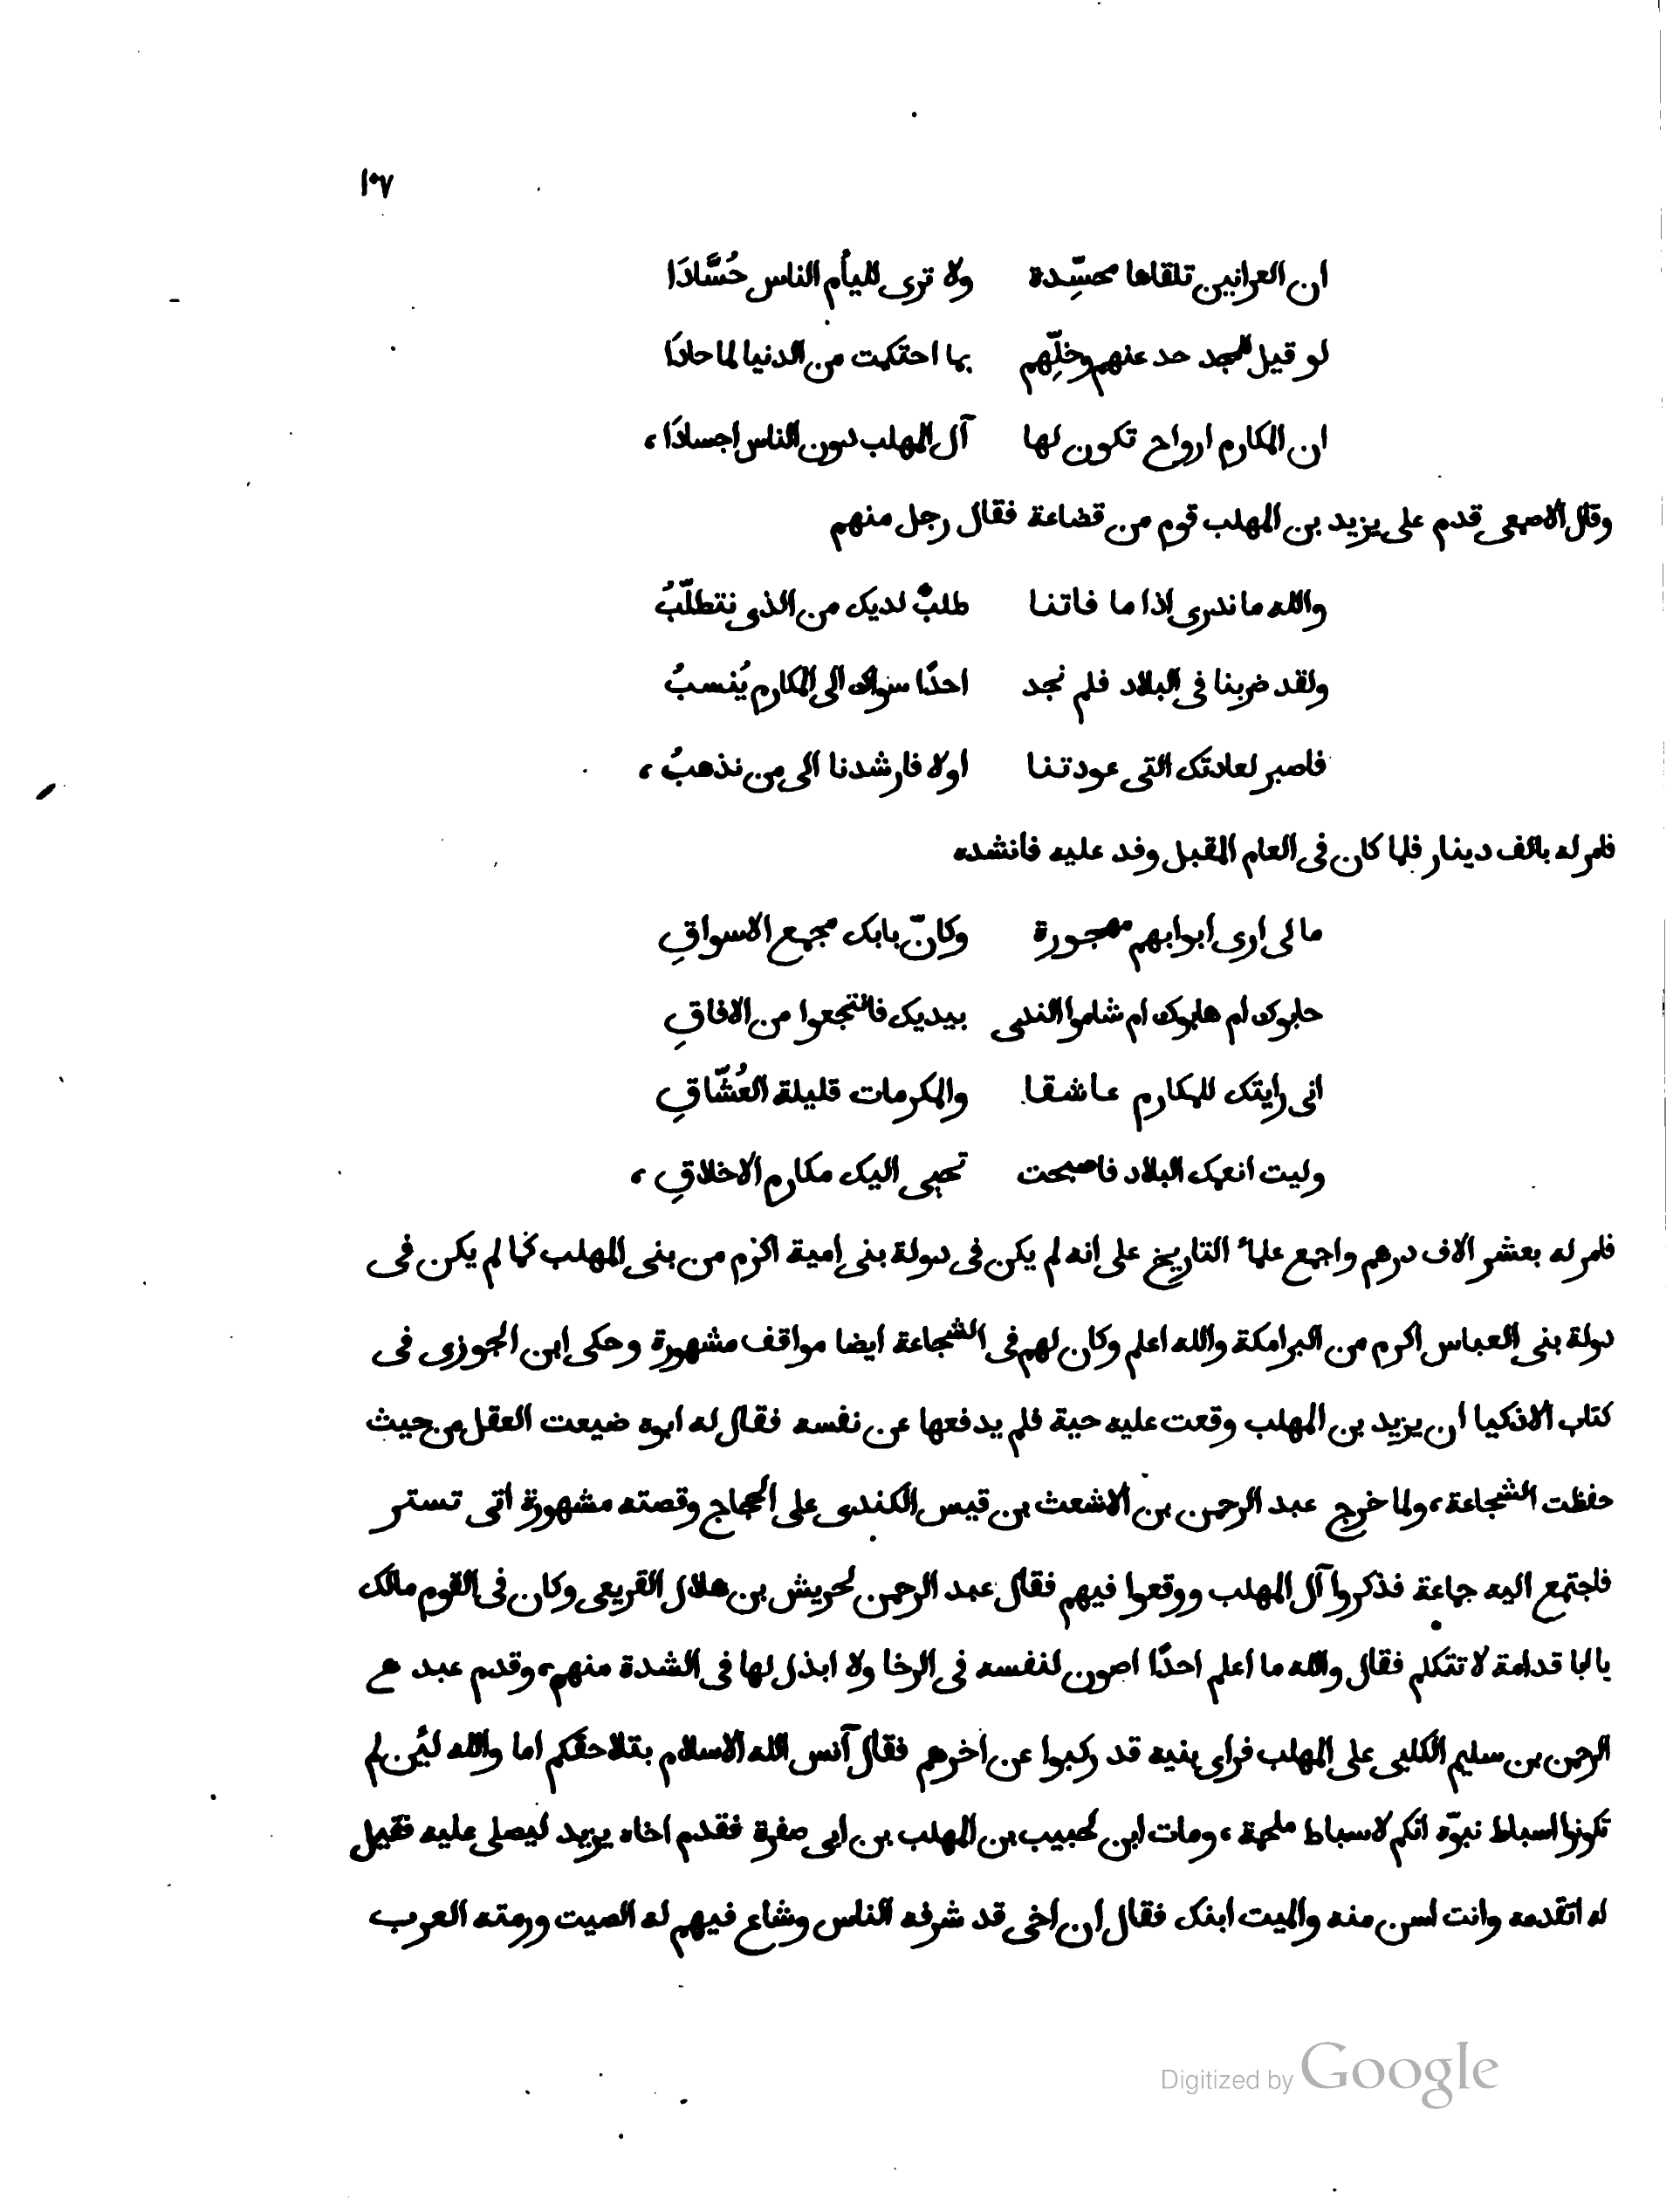 ١٠٧
ان العرانين تلقاها محسِّدة ولا ترى لليأم الناس حُسَّادَا
لو قيل للمجد حد عنهم وخلِّهم بما احتكمت من الدنيا لما حادَا
ان المكارم ارواح تكون لها آل المهلب دون الناس اجسادَا،
وقال الاصمعى قدم على يزيد بن المهلب قوم من قضاعة فقال رجل منهم
والله ما ندرى اذا ما فاتنا طلبٌ لديك من الذى نتطلّبُ
ولقد ضربنا فى البلاد فلم نجد احدًا سواك الى المكارم يُنسبُ
فاصبر لعادتك التى عودتنا اولا فارشدنا الى من نذهبُ،
فامر له بالف دينار فلما كان فى العام المقبل وفد عليه فانشده
ما لى ارى ابوابهم مهجورة وكانّ بابك مجمع الاسواقِ
حابوك ام هابوك ام شاموا الندى بيديك فانتجعوا من الافاقِ
انى رايتك للمكارم عاشقا والمكرمات قليلة العُشّاقِ
وليت انعمك البلاد فاصبحت تجبى اليك مكارم الاخلاقِ،
فامر له بعشر الاف درهم واجمع علماء التاريخ على انه لم يكن فى دولة بنى امية اكرم من بنى المهلب كما لم يكن فى
دولة بنى العباس اكرم من البرامكة والله اعلم وكان لهم فى الشجاعة ايضا مواقف مشهورة وحكى ابن الجوزى فى
كتاب الاذكيا ان يزيد بن المهلب وقعت عليه حية فلم يدفعها عن نفسه فقال له ابوه ضيعت العقل من حيث
حفظت الشجاعة، ولما خرج عبد الرحمن بن الاشعث بن قيس الكندى على الحجاج وقصته مشهورة اتى تستر
فاجتمع اليه جماعة فذكروا آل المهلب ووقعوا فيهم فقال عبد الرحمن لحريش بن هلال القريعى وكان فى القوم مالك
يا ابا قدامة لا تتكلم فقال والله ما اعلم احدًا اصون لنفسه فى الرخا ولا ابذل لها فى الشدة منهم، وقدم عبد
الرحمن بن سليم الكلبى على المهلب فراى بنيه قد ركبوا عن اخرهم فقال آنس الله الاسلام بتلاحقكم اما والله ليُن لم
تكونوا اسباط نبوّه انكم لاسباط ملحمة، ومات ابن لحبيب بن المهلب بن ابى صفرة فقدم اخاه يزيد ليصلى عليه فقيل
له اتقدمه وانت اسن منه والميت ابنك فقال ان اخى قد شرفه الناس وشاع فيهم له الصيت ورمته العرب
Digitized by Google